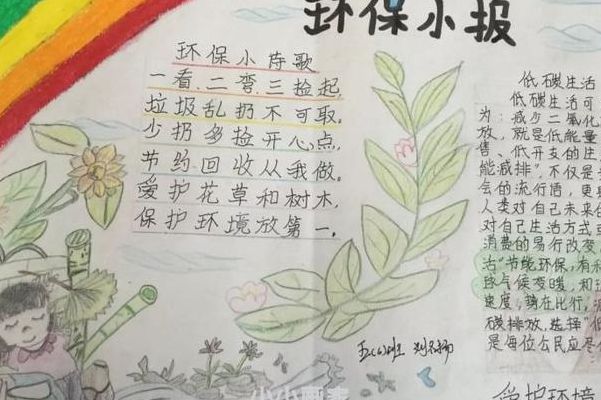 环保小报
环保小诗歌
一看、二弯、三捡起
垃圾乱扔不可取。
少扔多捡开心点,
节约回收从我做。
爱护花草和树木,
保护环境放第一。
低碳生活
低碳生活可
为:减少二氧化
放,就是低能量
售、低开支的
能减排",不仅是
会的流行语,更
人类对自己未来
对自己生活方式或
消费的易行改变
活"节能环保,有
球气候变暖,和
速度,
碳排放,选择"低
是每位公民应尽
爱护环境